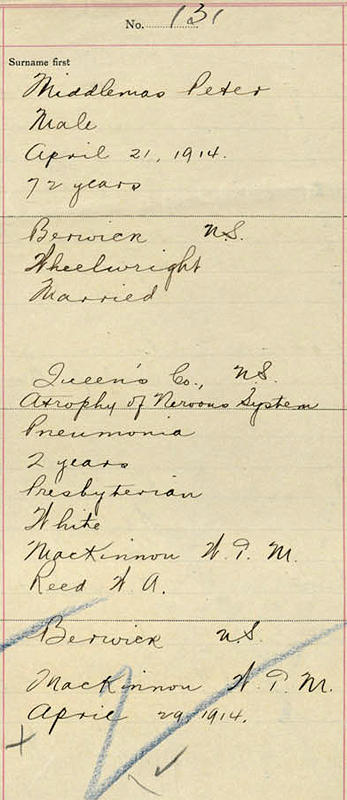 No. 131
Surname first
Middlemas Peter
Male
April 21, 1914.
72 years
Berwick N.S.
Wheelwright
Married
Queen's Co., N.S.
Atrophy of Nervous System
Pneumonia
2 years
Presbyterian
White
MacKinnon W. T. M.
Reed W. A.
Berwick N.S.
MacKinnon W. T. M.
April 29, 1914.